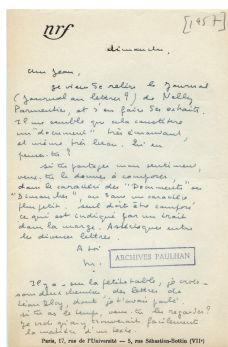 nrf
[1957]
dimanche,
mon Jean,
je viens de relire le Journal
(Journal ou lettres ?) de Nelly
Parmentier, et d'en faire des extraits.
Il me semble que cela constitue
un "document" très émouvant,
et même très beau. Qu'en
penses-tu ?
Si tu partages mon sentiment,
veux-tu le donner à composer,
dans le caractère des "Documents" ou
"Dimanches", ou dans un caractère
plus petit. Seul doit être composé
ce qui est indiqué par un trait
dans la marge. Astérisques entre
les diverses lettres.
A toi
M.
ARCHIVES PAULHAN
Il y a sur la petite table, je crois,
sous deux chemises des lettres de
Jean Gloy, dont je t'avais parlé.
Si tu as le temps, veux-tu les regarder ?
Je crois qu'on trouverait facilement
la matière d'un texte.
Paris, 17, rue de l'Université — 5, rue Sébastien-Bottin (VIIe)